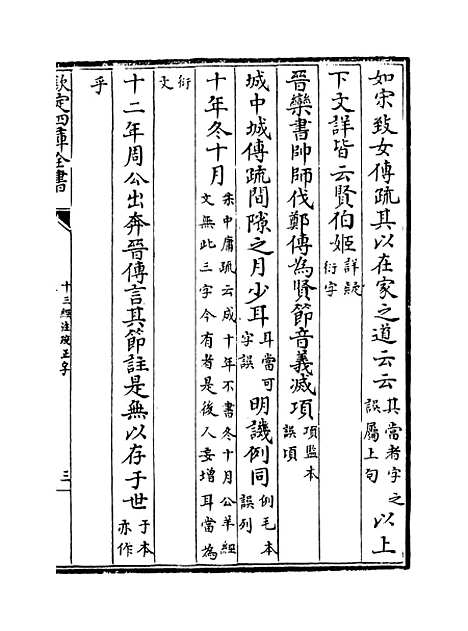 如宋致女傳疏其以在家之道云云其當者字之誤屬上句以上
下文詳皆云賢伯姬詳疑衍字
晉欒書帥師伐鄭傳為賢節音義滅項項監本誤項
城中城傳疏間隙之月少耳耳當可字誤明譏例同例毛本誤列
十年冬十月案中庸疏云成十年不書冬十月公羊經文無此三字今有者是後人妄增耳當為
衍文
十二年周公出奔晉傳言其節註是無以存于世于本亦作
乎
欽定四庫全書
十三經注疏正字
三